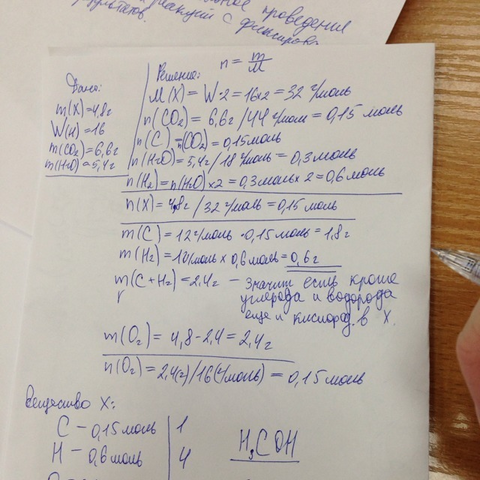 проведения
реакций с фиксиров
n = m/M
Дано:
Решение:
m(X) = 4,8г
W(H) = 16
m(CO₂) = 6,6г
m(H₂O) = 5,4г
M(X) = W·2 = 16×2 = 32 г/моль
n(CO₂) = 6,6г/44 г/моль = 0,15 моль
n(C) = n(CO₂) = 0,15моль
n(H₂O) = 5,4г/18 г/моль = 0,3моль
n(H₂) = n(H₂O)×2 = 0,3моль×2 = 0,6моль
n(X) = 4,8г/32 г/моль = 0,15моль
m(C) = 12г/моль·0,15моль = 1,8г
m(H₂) = 1г/моль × 0,6моль = 0,6г
m(C+H₂) = 2,4г – значит есть кроме
углерода и водорода
еще и кислород. в X.
m(O₂) = 4,8-2,4 = 2,4г
n(O₂) = 2,4(г)/16(г/моль) = 0,15моль
Вещество X:
C – 0,15моль | 1
H – 0,6моль | 4
H₃COH